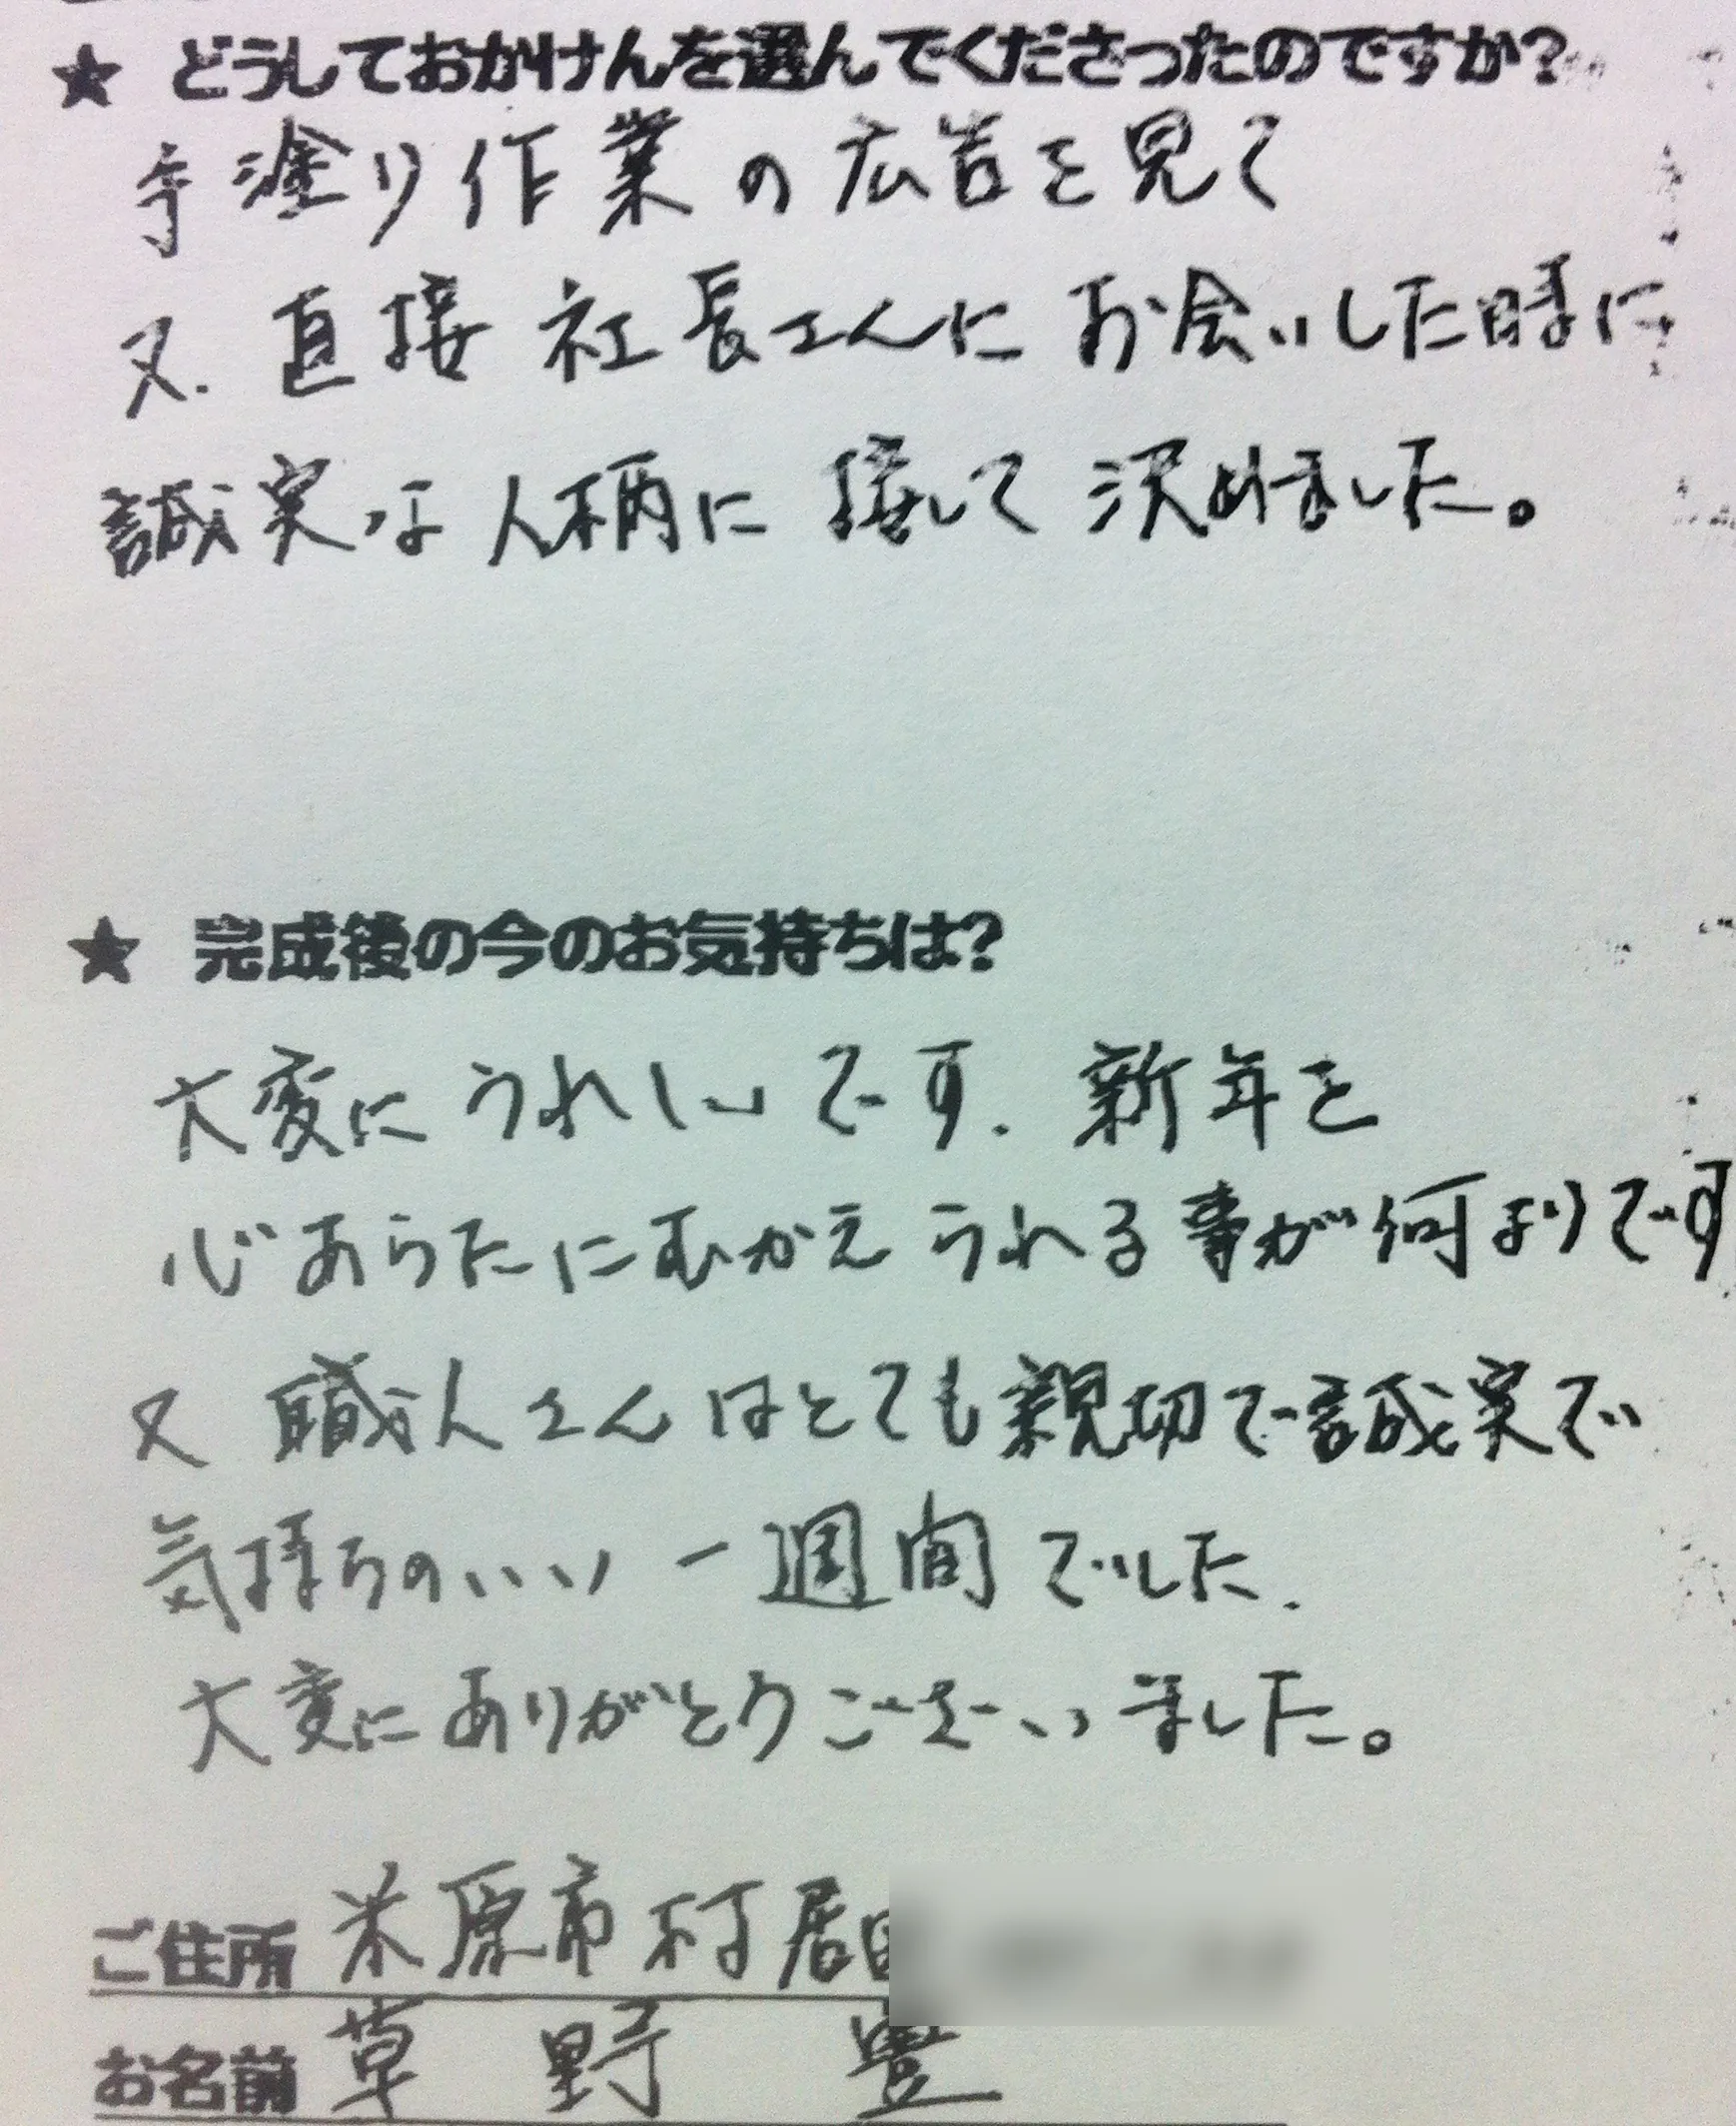 ★ どうしておかけんを選んでくださったのですか?
手塗り作業の広告を見て
又.直接 社長さんに お会いした時に
誠実な人柄に 接して 決めました。
★ 完成後の今のお気持ちは?
大変に うれしいです. 新年を
心あらたにむかえうれる事が何よりです
又 職人さんはとても親切で誠実で
気持ちのいい 一週間でした.
大変にありがとうございました。
ご住所 米原市村居田
お名前 草野 豊